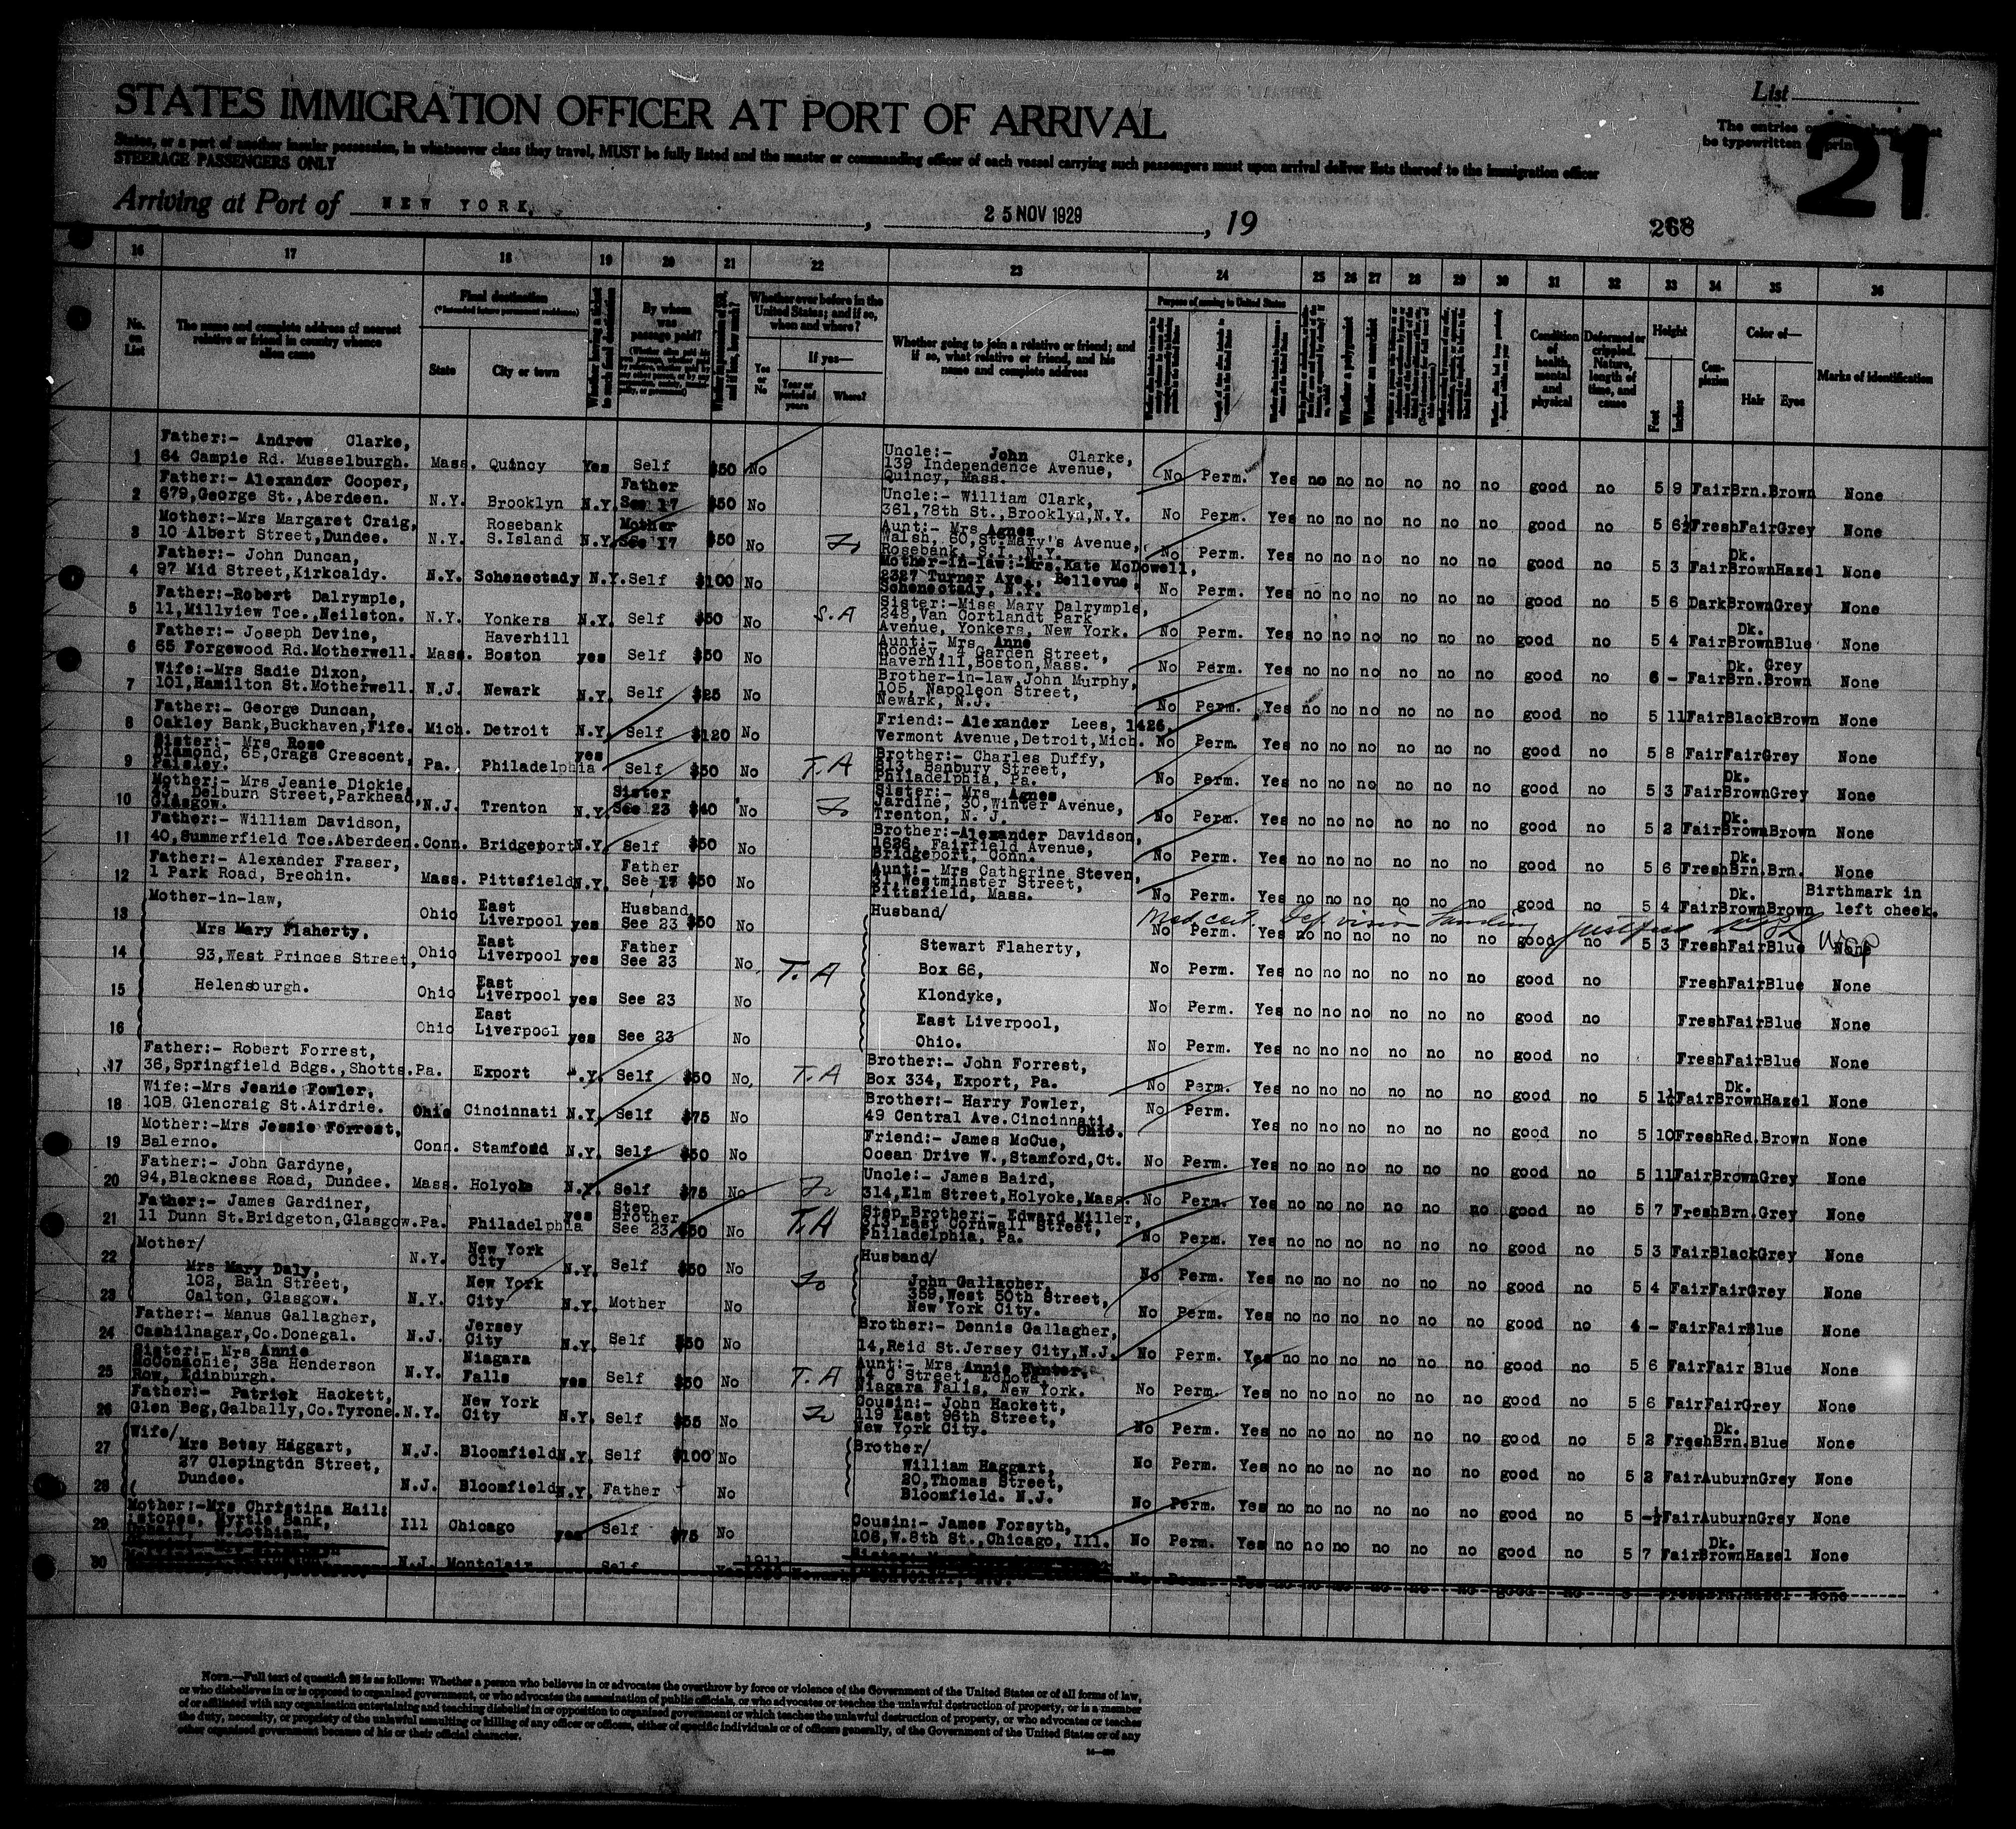 STATES IMMIGRATION OFFICER AT PORT OF ARRIVAL
List
The entries
be typewritten
21
States, or a part of another insular possession, in whatsoever class they travel, MUST be fully listed and the master or commanding officer of each vessel carrying such passengers must upon arrival deliver lists thereof to the immigration officer
STEERAGE PASSENGERS ONLY
Arriving at Port of NEW YORK, , 25 NOV 1929 , 19
268
16 17 18 19 20 21 22 23 24 25 26 27 28 29 30 31 32 33 34 35 36
No. on List
The name and complete address of nearest relative or friend in country whence alien came
Final destination
(*Intended future permanent residence)
State
City or town
By whom was passage paid?
Whether ever before in the United States; and if so, when and where?
Yes or No
If yes—
Year or period of years
Where?
Whether going to join a relative or friend; and if so, what relative or friend, and his name and complete address
Purpose of coming to United States
Whether a polygamist
Whether an anarchist
Condition of health, mental and physical
Deformed or crippled. Nature, length of time, and cause
Height
Feet
Inches
Complexion
Color of—
Hair
Eyes
Marks of identification
1 Father:- Andrew Clarke, 64 Campie Rd. Musselburgh. Mass. Quincy Yes Self $50 No Uncle:- John Clarke, 139 Independence Avenue, Quincy, Mass. No Perm. Yes no no no no no no good no 5 9 Fair Brn. Brown None
2 Father:- Alexander Cooper, 679, George St., Aberdeen. N.Y. Brooklyn N.Y. Father See 17 $50 No Uncle:- William Clark, 361, 78th St., Brooklyn, N.Y. No Perm. Yes no no no no no no good no 5 6½ Fresh Fair Grey None
3 Mother:-Mrs Margaret Craig, 10 Albert Street, Dundee. N.Y. Rosebank S.Island N.Y. Mother See 17 $50 No Aunt:- Mrs Agnes Walsh, 60, St.Mary's Avenue, Rosebank, S.I., N.Y. No Perm. Yes no no no no no no good no 5 3 Fair Dk. Brown Hazel None
4 Father:- John Duncan, 97 Mid Street, Kirkcaldy. N.Y. Schenectady N.Y. Self $100 No Mother-in-law:-Mrs. Kate McDowell, 2327 Turner Ave., Bellevue, Schenectady, N.Y. No Perm. Yes no no no no no no good no 5 6 Dark Brown Grey None
5 Father:-Robert Dalrymple, 11, Millview Tce., Neilston. N.Y. Yonkers N.Y. Self $50 No S.A Sister:-Miss Mary Dalrymple, 248, Van Cortlandt Park Avenue, Yonkers, New York. No Perm. Yes no no no no no no good no 5 4 Fair Dk. Brown Blue None
6 Father:- Joseph Devine, 65 Forgewood Rd. Motherwell. Mass. Haverhill Boston yes Self $50 No Aunt:- Mrs Anne Rooney, 4 Garden Street, Haverhill, Boston, Mass. No Perm. Yes no no no no no no good no 6 - Fair Dk. Brn. Grey Brown None
7 Wife:-Mrs Sadie Dixon, 101, Hamilton St. Motherwell. N.J. Newark N.Y. Self $25 No Brother-in-law, John Murphy, 105, Napoleon Street, Newark, N.J. No Perm. Yes no no no no no no good no 5 11 Fair Black Brown None
8 Father:- George Duncan, Oakley Bank, Buckhaven, Fife. Mich. Detroit N.Y. Self $120 No Friend:- Alexander Lees, 1426, Vermont Avenue, Detroit, Mich. No Perm. Yes no no no no no no good no 5 8 Fair Fair Grey None
9 Sister:- Mrs Rose Diamond, 65, Crags Crescent, Paisley. Pa. Philadelphia yes Self $50 No T.A Brother:- Charles Duffy, 613, Banbury Street, Philadelphia, Pa. No Perm. Yes no no no no no no good no 5 3 Fair Dk. Brown Grey None
10 Mother:- Mrs Jeanie Dickie, 43, Delburn Street, Parkhead, Glasgow. N.J. Trenton N.Y. Sister See 23 $40 No Sister:- Mrs Agnes Jardine, 30, Winter Avenue, Trenton, N. J. No Perm. Yes no no no no no no good no 5 2 Fair Dk. Brown Brown None
11 Father:- William Davidson, 40, Summerfield Tce. Aberdeen. Conn. Bridgeport N.Y. Self $50 No Brother:-Alexander Davidson, 1626, Fairfield Avenue, Bridgeport, Conn. No Perm. Yes no no no no no no good no 5 6 Fresh Dk. Brn. Brn. None
12 Father:- Alexander Fraser, 1 Park Road, Brechin. Mass. Pittsfield N.Y. Father See 17 $50 No Aunt:- Mrs Catherine Steven, 31, Westminster Street, Pittsfield, Mass. No Perm. Yes no no no no no no good no 5 4 Fair Dk. Brown Brown Birthmark in left cheek.
Med cert. Def vision
13 Mother-in-law, Ohio East Liverpool yes Husband See 23 $50 No Husband/ No Perm. Yes no no no no no no good no 5 3 Fresh Fair Blue None
Mrs Mary Flaherty,
14 93, West Princes Street, Ohio East Liverpool yes Father See 23 No T.A Stewart Flaherty, Box 66, No Perm. Yes no no no no no no good no Fresh Fair Blue None
15 Helensburgh. Ohio East Liverpool yes See 23 No Klondyke, No Perm. Yes no no no no no no good no Fresh Fair Blue None
16 Ohio East Liverpool yes See 23 No East Liverpool, Ohio. No Perm. Yes no no no no no no good no Fresh Fair Blue None
17 Father:- Robert Forrest, 36, Springfield Bdgs., Shotts. Pa. Export N.Y. Self $50 No, T.A Brother:- John Forrest, Box 334, Export, Pa. No Perm. Yes no no no no no no good no 5 1½ Fair Dk. Brown Hazel None
18 Wife:-Mrs Jeanie Fowler, 10B Glencraig St. Airdrie. Ohio Cincinnati N.Y. Self $75 No Brother:- Harry Fowler, 49 Central Ave. Cincinnati, Ohio. No Perm. Yes no no no no no no good no 5 10 Fresh Red. Brown None
19 Mother:-Mrs Jessie Forrest, Balerno. Conn. Stamford N.Y. Self $50 No Friend:- James McCue, Ocean Drive W., Stamford, Ct. No Perm. Yes no no no no no no good no 5 11 Fair Brown Grey None
20 Father:- John Gardyne, 94, Blackness Road, Dundee. Mass. Holyoke N.Y. Self $75 No Uncle:- James Baird, 314, Elm Street, Holyoke, Mass. No Perm. Yes no no no no no no good no 5 7 Fresh Brn. Grey None
21 Father:- James Gardiner, 11 Dunn St. Bridgeton, Glasgow. Pa. Philadelphia yes Step Brother See 23 $50 No T.A Step Brother:- Edward Miller, 313 East Cornwall Street, Philadelphia, Pa. No Perm. Yes no no no no no no good no 5 3 Fair Black Grey None
22 Mother/ Mrs Mary Daly, N.Y. New York City N.Y. Self $50 No Husband/ John Gallagher, No Perm. Yes no no no no no no good no 5 4 Fair Fair Grey None
23 102, Bain Street, Calton, Glasgow. N.Y. New York City N.Y. Mother No 359, West 50th Street, New York City. No Perm. Yes no no no no no no good no 4 - Fair Fair Blue None
24 Father:- Manus Gallagher, Cashilnagar, Co. Donegal. N.J. Jersey City N.Y. Self $50 No Brother:- Dennis Gallagher, 14, Reid St. Jersey City, N.J. No Perm. Yes no no no no no no good no 5 6 Fair Fair Blue None
25 Sister:- Mrs Annie McConachie, 38a Henderson Row, Edinburgh. N.Y. Niagara Falls yes Self $50 No T.A Aunt:- Mrs Annie Hunter, C Street, Echota, Niagara Falls, New York. No Perm. Yes no no no no no no good no 5 6 Fair Fair Grey None
26 Father:- Patrick Hackett, Glen Beg, Galbally, Co. Tyrone. N.Y. New York City N.Y. Self $55 No Cousin:- John Hackett, 119 East 96th Street, New York City. No Perm. Yes no no no no no no good no 5 2 Fresh Dk. Brn. Blue None
27 Wife/ Mrs Betsy Haggart, N.J. Bloomfield N.Y. Self $100 No Brother/ William Haggart, No Perm. Yes no no no no no no good no 5 2 Fair Auburn Grey None
28 27 Clepington Street, Dundee. N.J. Bloomfield N.Y. Father No 20, Thomas Street, Bloomfield. N.J. No Perm. Yes no no no no no no good no 5 -½ Fair Auburn Grey None
29 Mother:-Mrs Christina Hail: :stones, Myrtle Bank, W. Lothian. Ill Chicago yes Self $75 No Cousin:- James Forsyth, 108, W. 8th St., Chicago, Ill. No Perm. Yes no no no no no no good no 5 7 Fair Dk. Brown Hazel None
30 N.J. Montclair Self 1911 No Perm. Yes no no no no no no good no 5 - Fresh Brn. Hazel None
NOTE.—Full text of question 28 is as follows: Whether a person who believes in or advocates the overthrow by force or violence of the Government of the United States or of all forms of law,
or who disbelieves in or is opposed to organized government, or who advocates the assassination of public officials, or who advocates or teaches the unlawful destruction of property, or is a member
of or affiliated with any organization entertaining and teaching disbelief in or opposition to organized government or which teaches the unlawful destruction of property, or who advocates or teaches
the duty, necessity, or propriety of the unlawful assaulting or killing of any officer or officers, either of specific individuals or of officers generally, of the Government of the United States or of any
other organized government because of his or their official character.